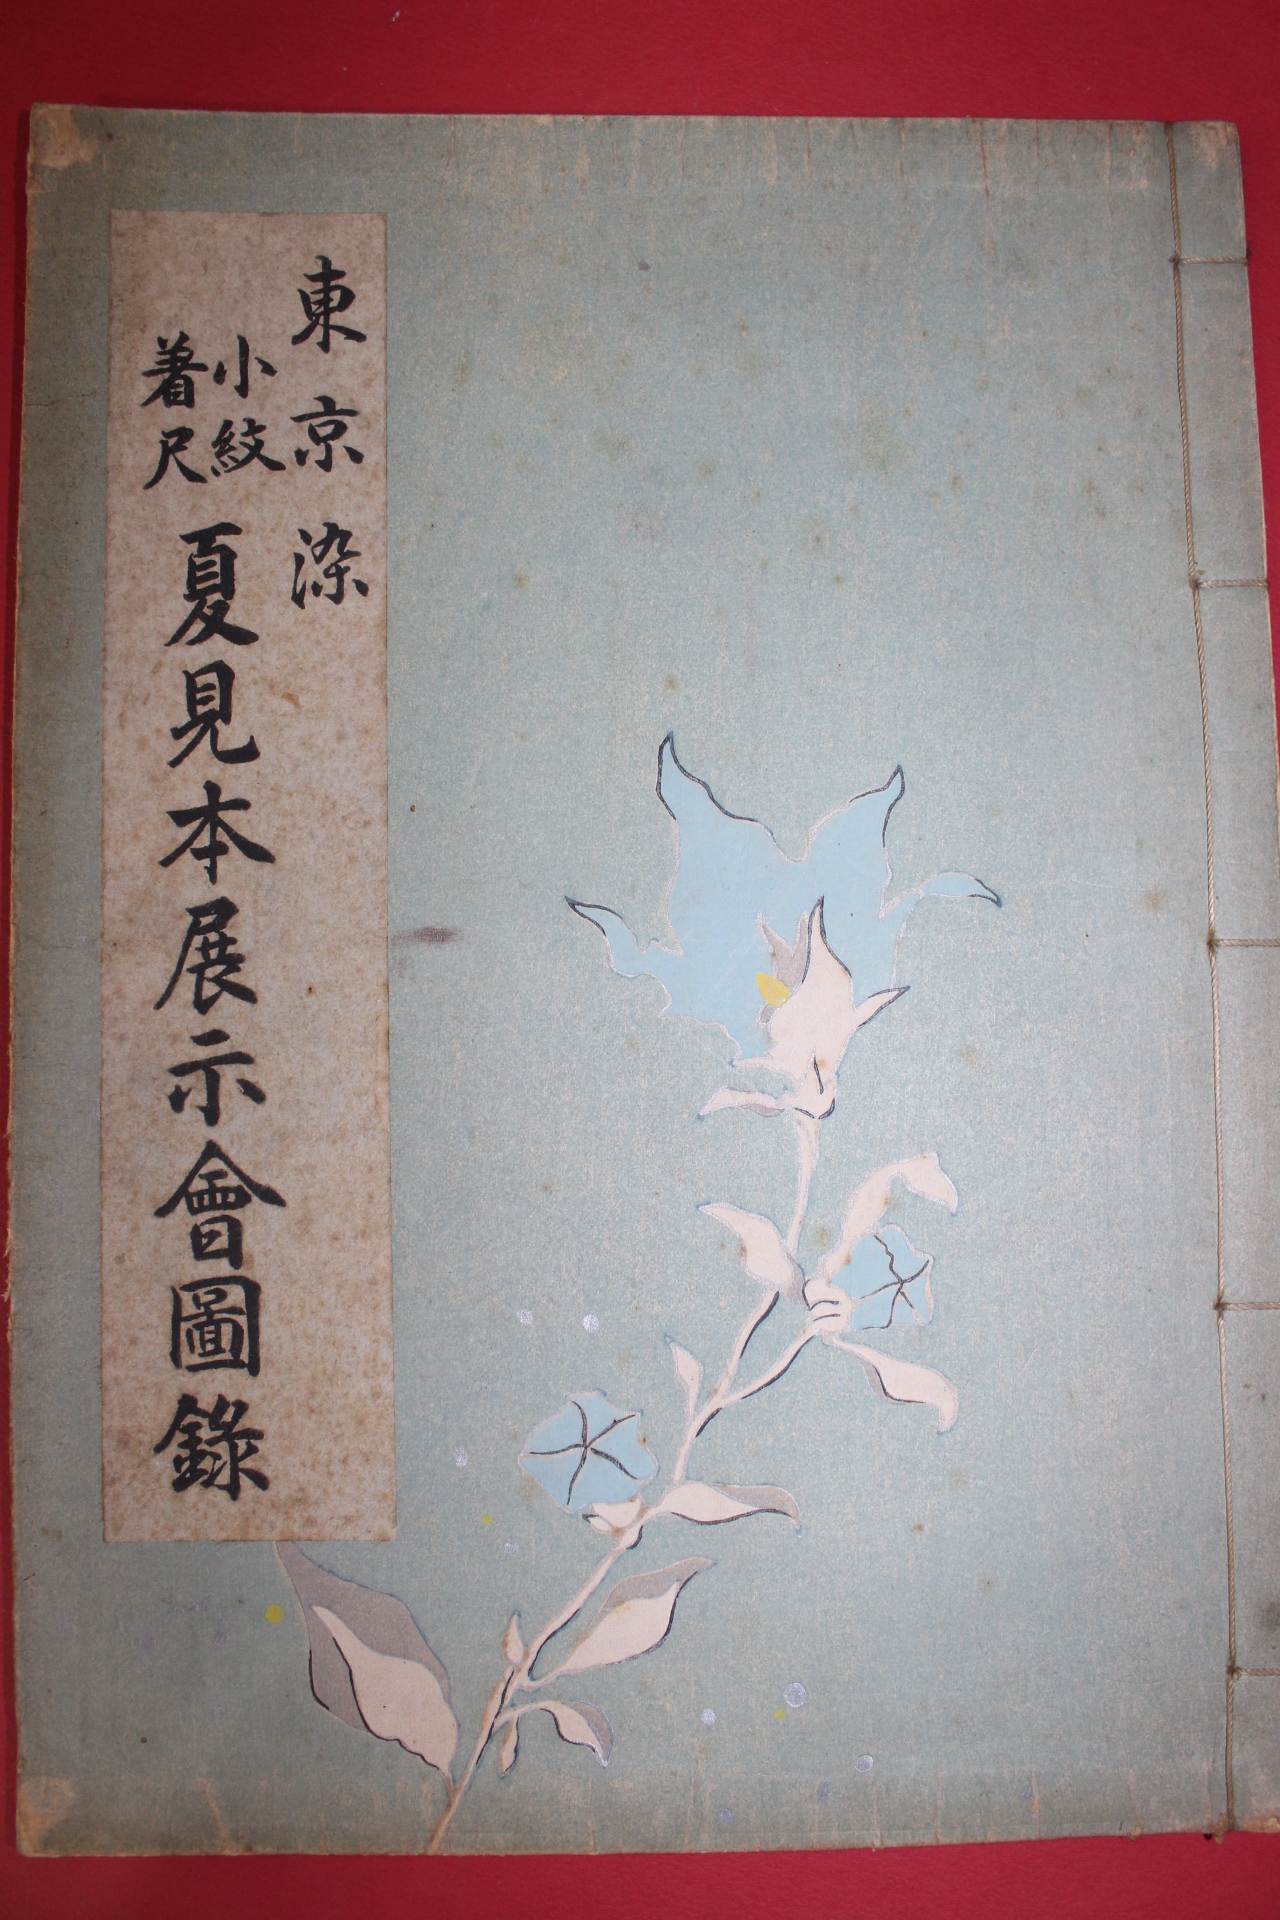 東京染
小紋
着尺
夏見本展示會圖錄